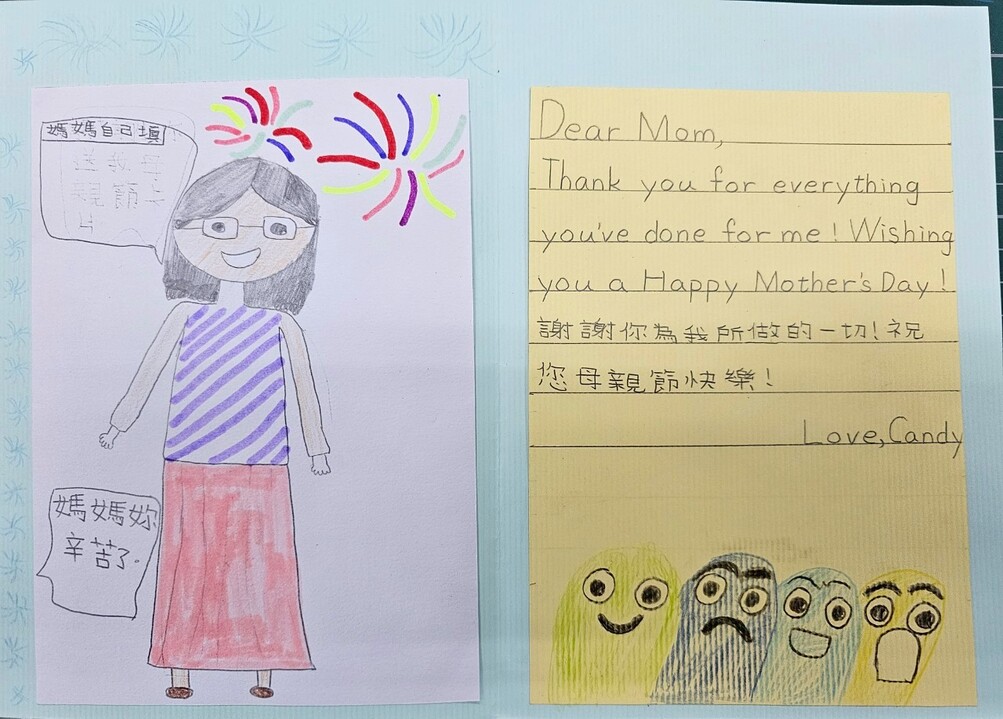 媽媽自己填
媽媽妳
辛苦了.
Dear Mom,
Thank you for everything
you've done for me! Wishing
you a Happy Mother's Day!
謝謝你為我所做的一切!祝
您母親節快樂!
Love, Candy